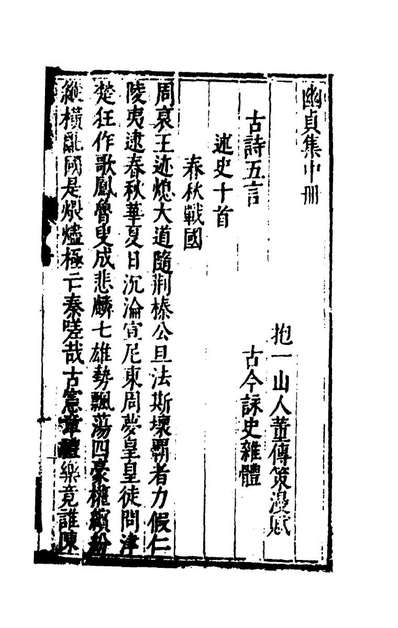 幽貞集中冊
抱一山人董傳策漫賦
古詩五言
古今詠史雜體
述史十首
春秋戰國
周衰王迹熄大道隨荆榛公旦法斯壞霸者力假仁
陵夷逮春秋華夏日沉淪宣尼東周夢皇皇徒問津
楚狂作歌鳳魯叟成悲麟七雄勢飄蕩四豪擁繽紛
縱橫亂國是爝極亡秦嗟哉古憲章禮樂竟誰陳